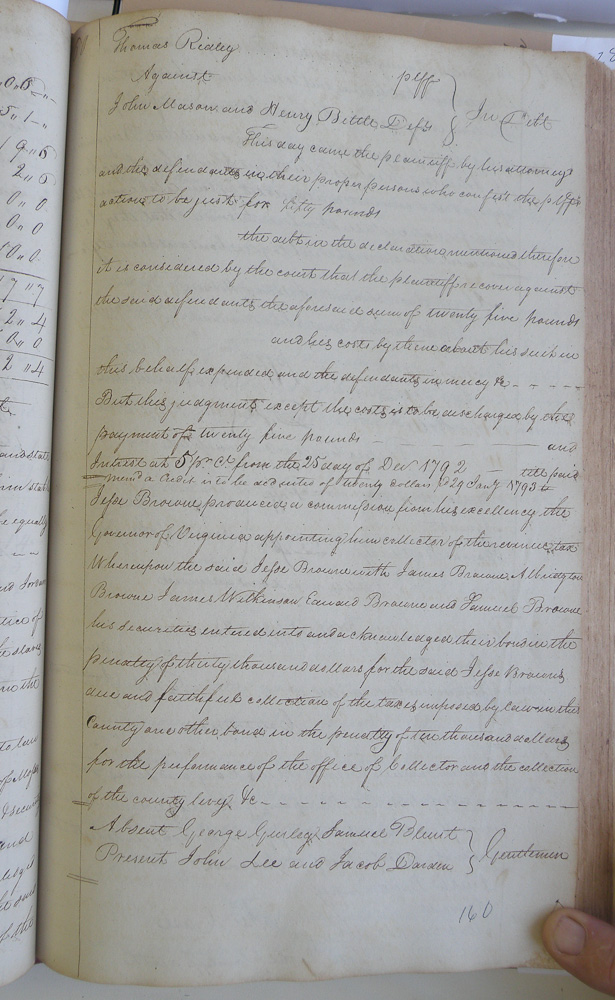 Thomas Ridley
Against plff
John Mason and Henry Bittle Defts } In Debt
This day came the plaintiff by his attorney
and the defendants in their proper persons who confest the plffs
action to be just for fifty pounds
the debt in the declaration mentioned therefore
it is considered by the court that the plaintiff recover against
the said defendants the aforesaid sum of twenty five pounds
and his costs by them about his suit in
this behalf expended and the defendants in mercy &c
But this judgment except the costs is to be discharged by the
payment of twenty five pounds and
Interest at 5 pr Ct from the 25 day of Decr 1792 till paid
a Credit is to be of twenty dollars pd 29 Jany 1793
Jesse Browne produced a commission from his excellency the
Governor of Virginia appointing him collector of the revenue tax
Whereupon the said Jesse Browne with James Browne Albridgton
Browne James Wilkinson Edward Browne and Samuel Browne
his securities entered into and acknowledged their bond in the
penalty of thirty thousand dollars for the said Jesse Browns
due and faithful collection of the taxes imposed by law in this
County another bond in the penalty of ten thousand dollars
for the performance of the office of Collector and the collection
of the county levy &c
Absent George Gurley Samuel Blunt
Present John Lee and Jacob Darden } Gentlemen
160